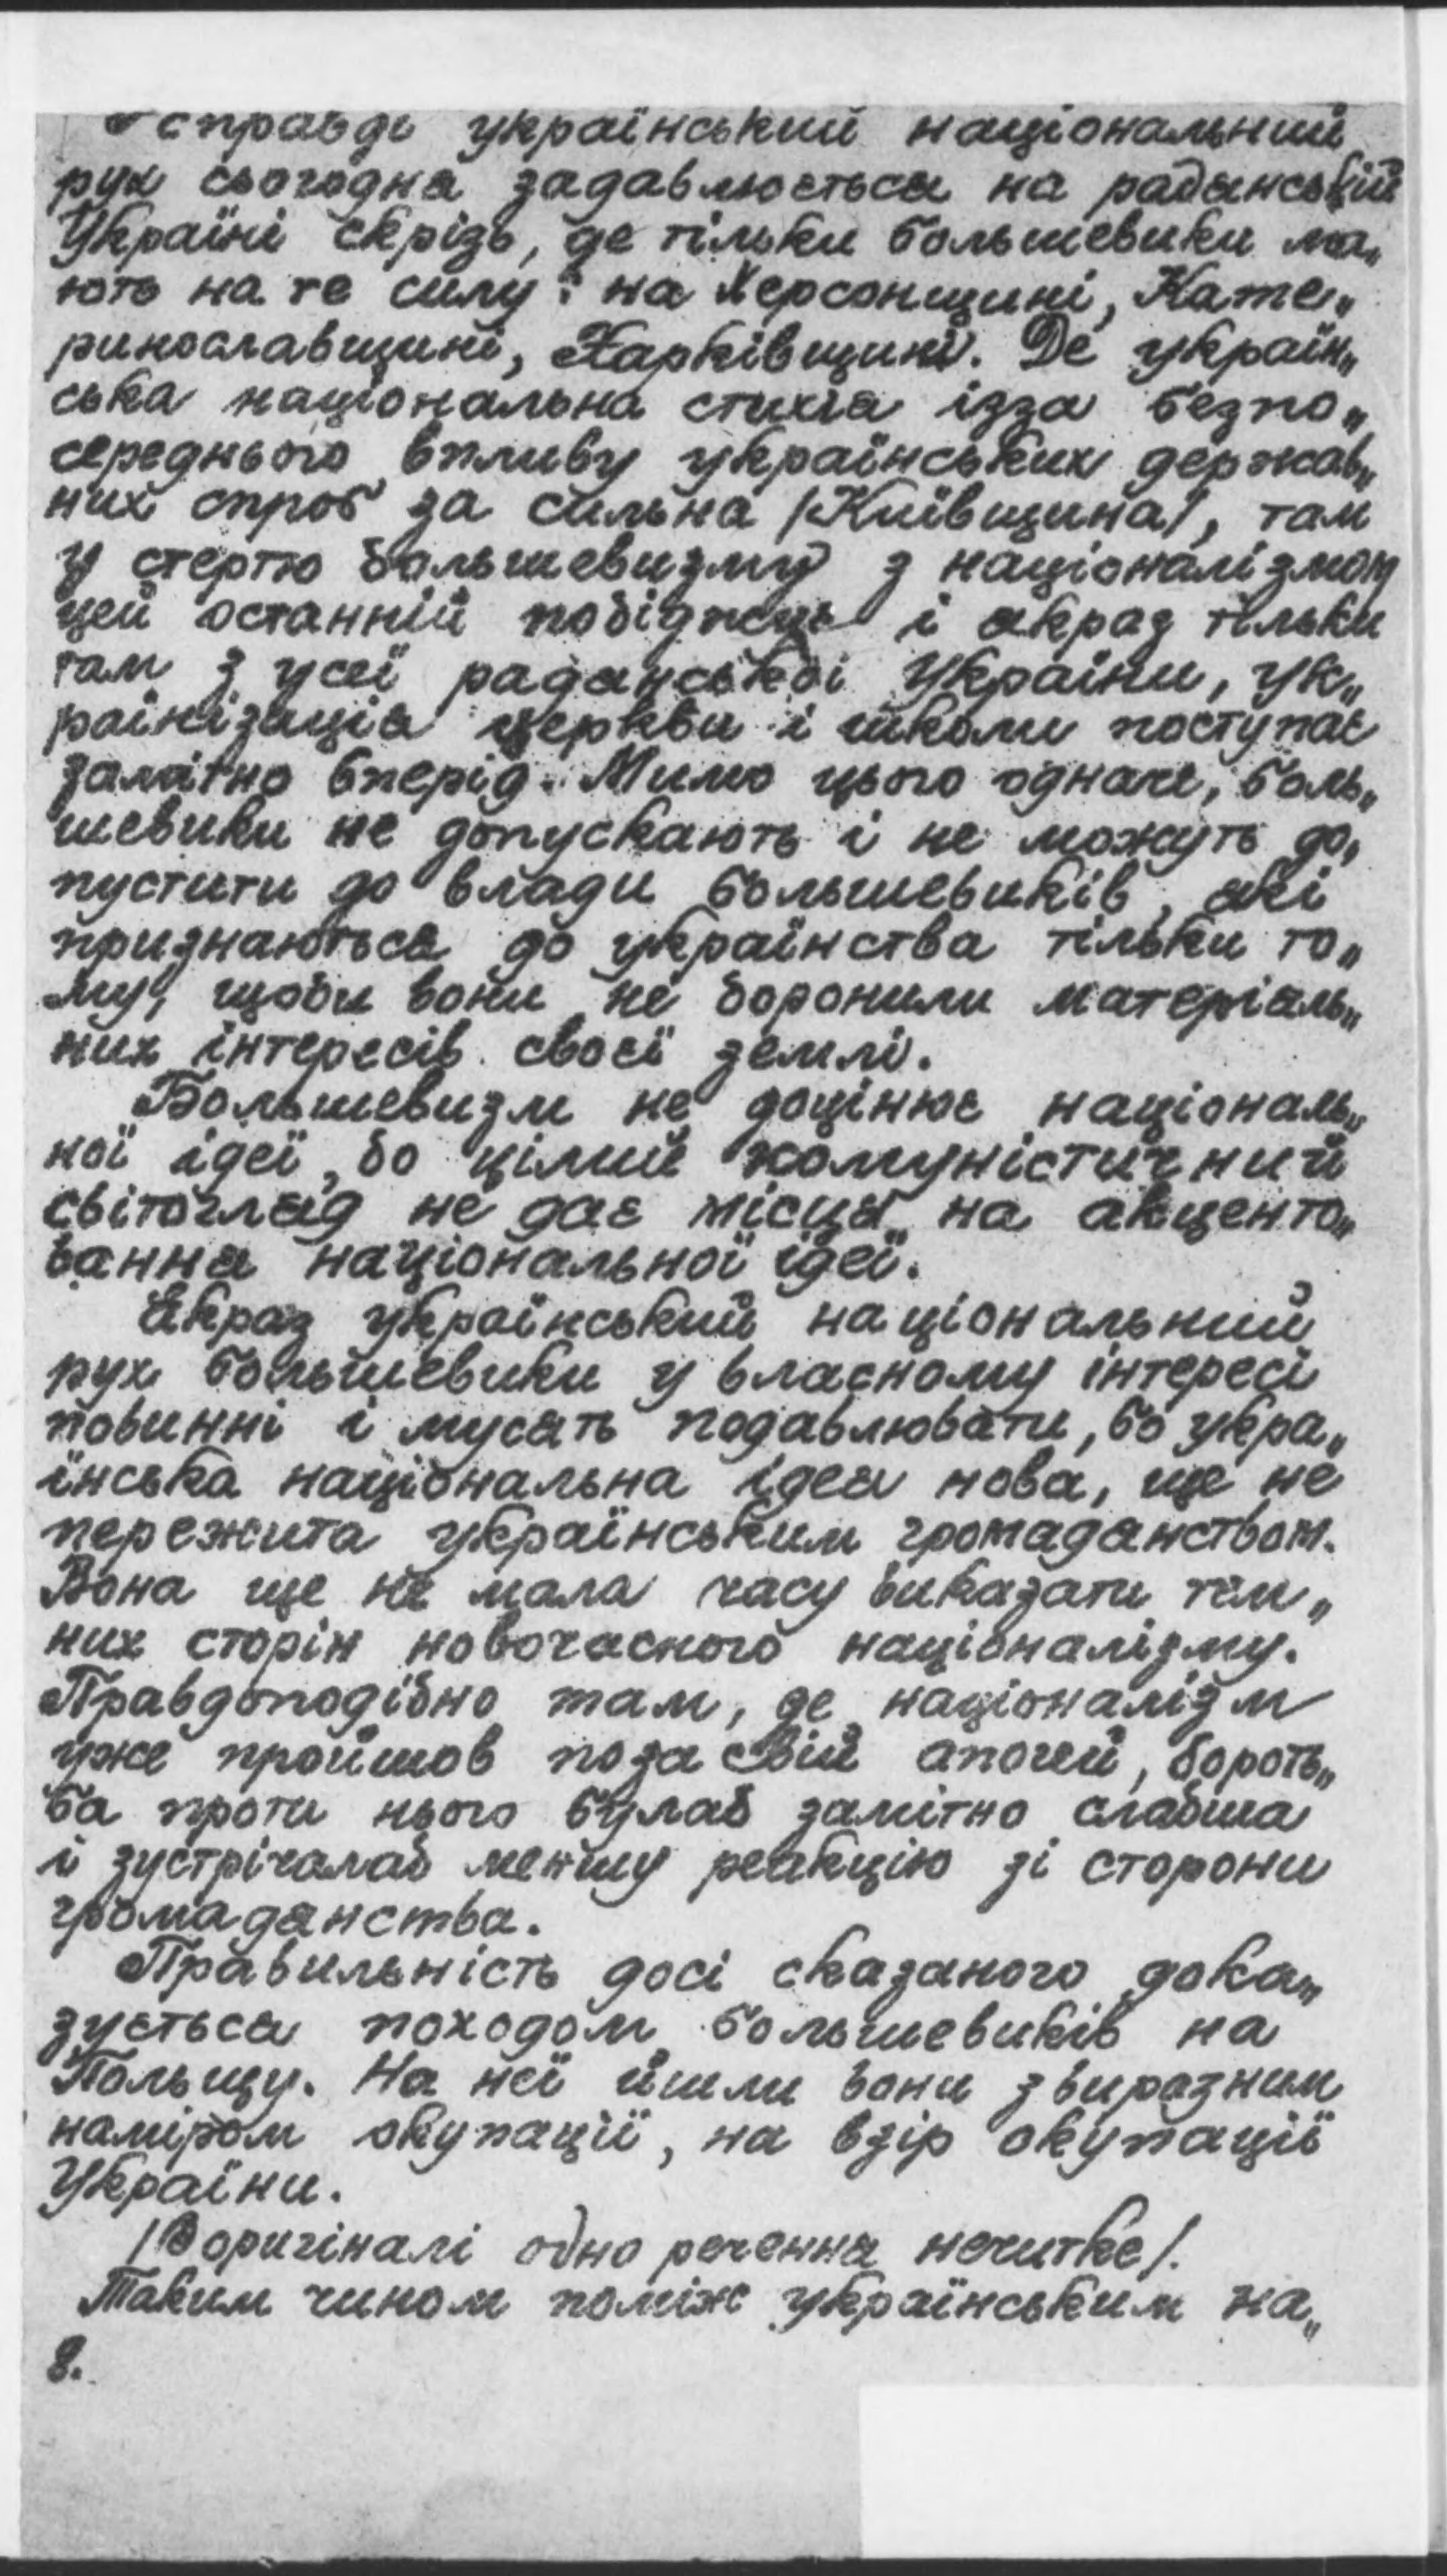 І справді український національний
рух сьогодня задавлюється на радянській
Україні скрізь, де тільки большевики ма„
ють на те силу: на Херсонщині, Кате„
ринославщині, Харківщині. Де україн„
ська національна стихія ізза безпо„
середнього впливу українських держав„
них спроб за сильна /Київщина/, там
у стертю большевизму з націоналізмом
цей останній побіджує і якраз тільки
там з усеї радянської України, ук„
раїнізація церкви і школи поступає
замітно вперід. Мимо цього одначе, боль„
шевики не допускають і не можуть до„
пустити до влади большевиків, які
признаються до українства тільки то„
му, щоби вони не боронили матеріяль„
них інтересів своєї землі.
Большевизм не доцінює національ„
ної ідеї, бо цілий комуністичний
світогляд не дає місця на акценто„
вання національної ідеї.
Якраз український національний
рух большевики у власному інтересі
повинні і мусять подавлювати, бо укра„
їнська національна ідея нова, ще не
пережита українським громадянством.
Вона ще не мала часу виказати тем„
них сторін новочасного націоналізму.
Правдоподібно там, де націоналізм
уже пройшов поза свій апогей, бороть„
ба проти нього булаб замітно слабша
і зустрічалаб меншу реакцію зі сторони
громадянства.
Правильність досі сказаного дока„
зується походом большевиків на
Польщу. На неї йшли вони з виразним
наміром окупації, на взір окупації
України.
/В оригіналі одно речення нечитке/.
Таким чином поміж українським на„
8.